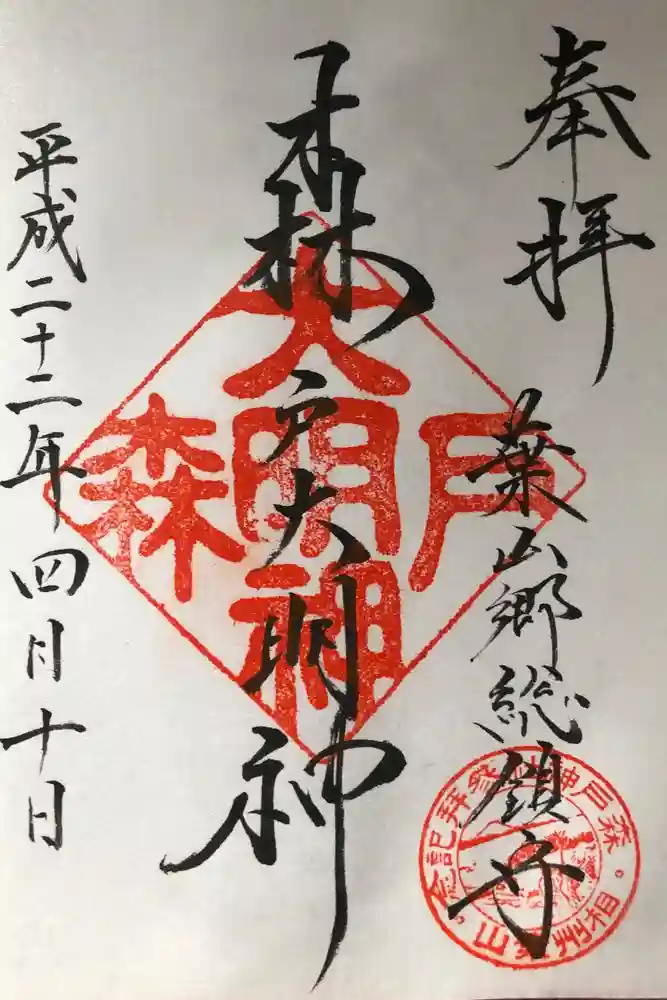 奉拝
葉山郷総鎮守
森戸大明神
平成二十二年四月十日
戸
大明神
森
森戸神社参拝記念。相州葉山。